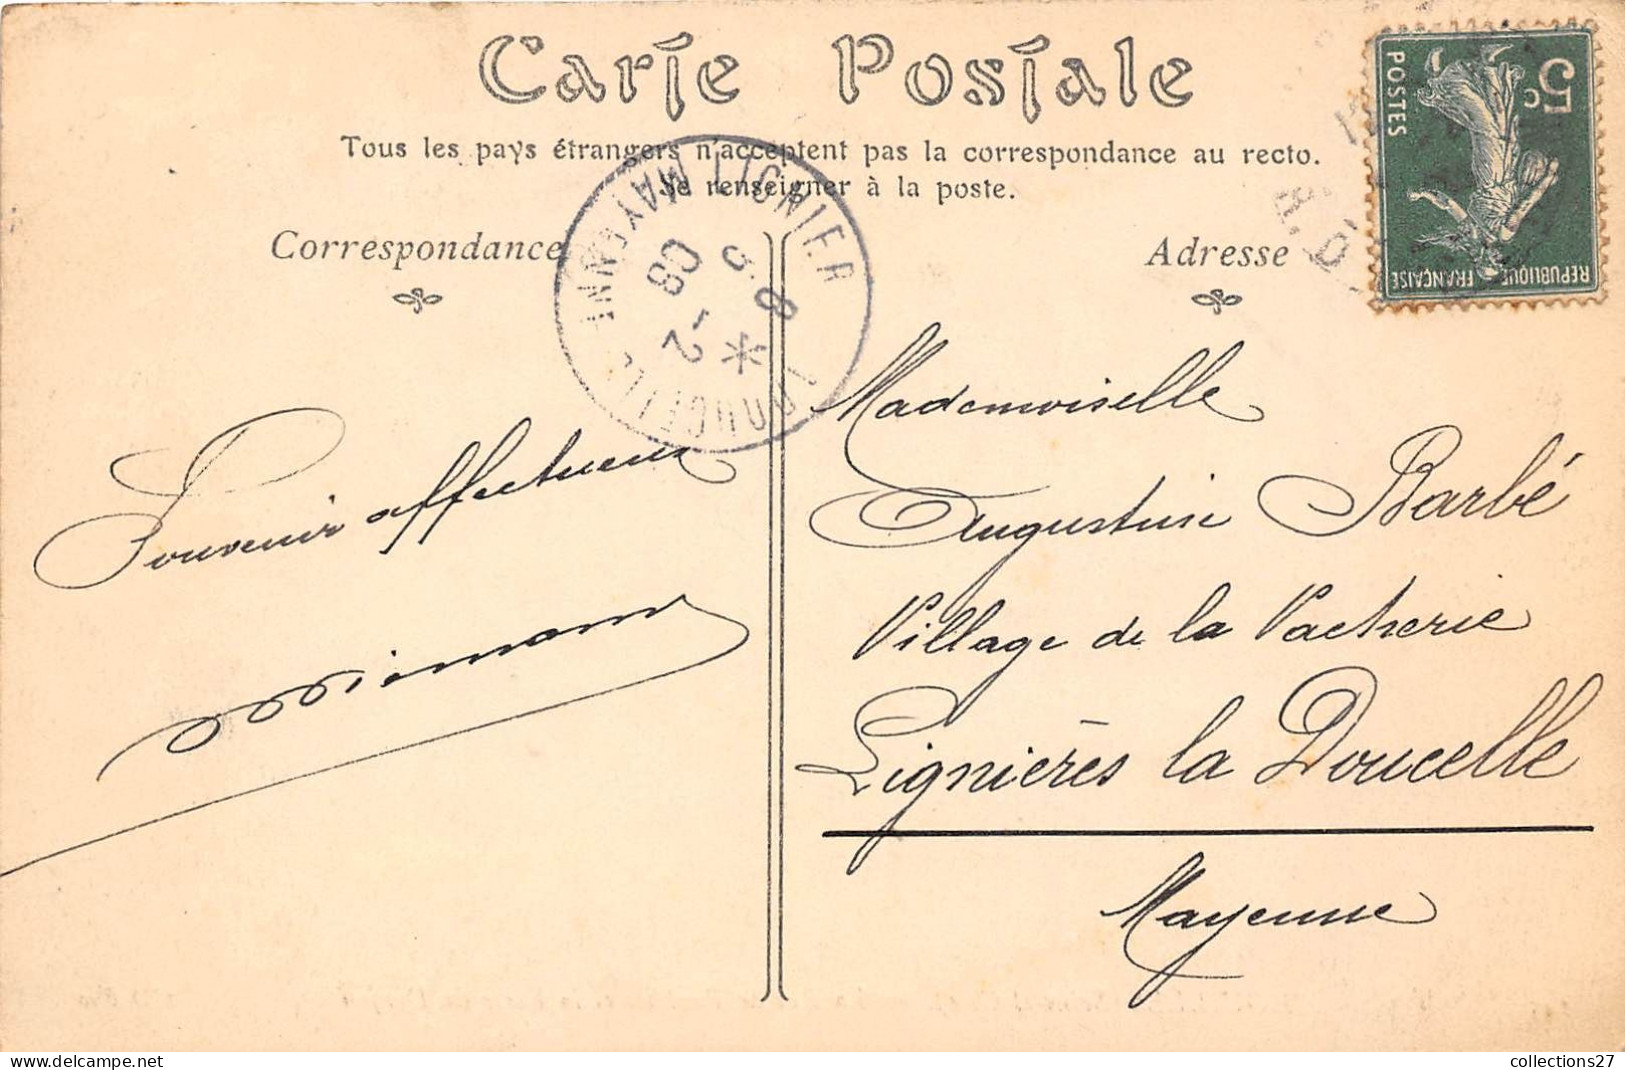 Carte Postale
Tous les pays étrangers n'acceptent pas la correspondance au recto.
Se renseigner à la poste.
Correspondance
Adresse
5c
POSTES
REPUBLIQUE FRANÇAISE
MAYENNE
8 - 2
08
Souvenir affectueux
Mademoiselle
Augustine Barbé
Village de la Vacherie
Lignières la Doucelle
Mayenne
collections27